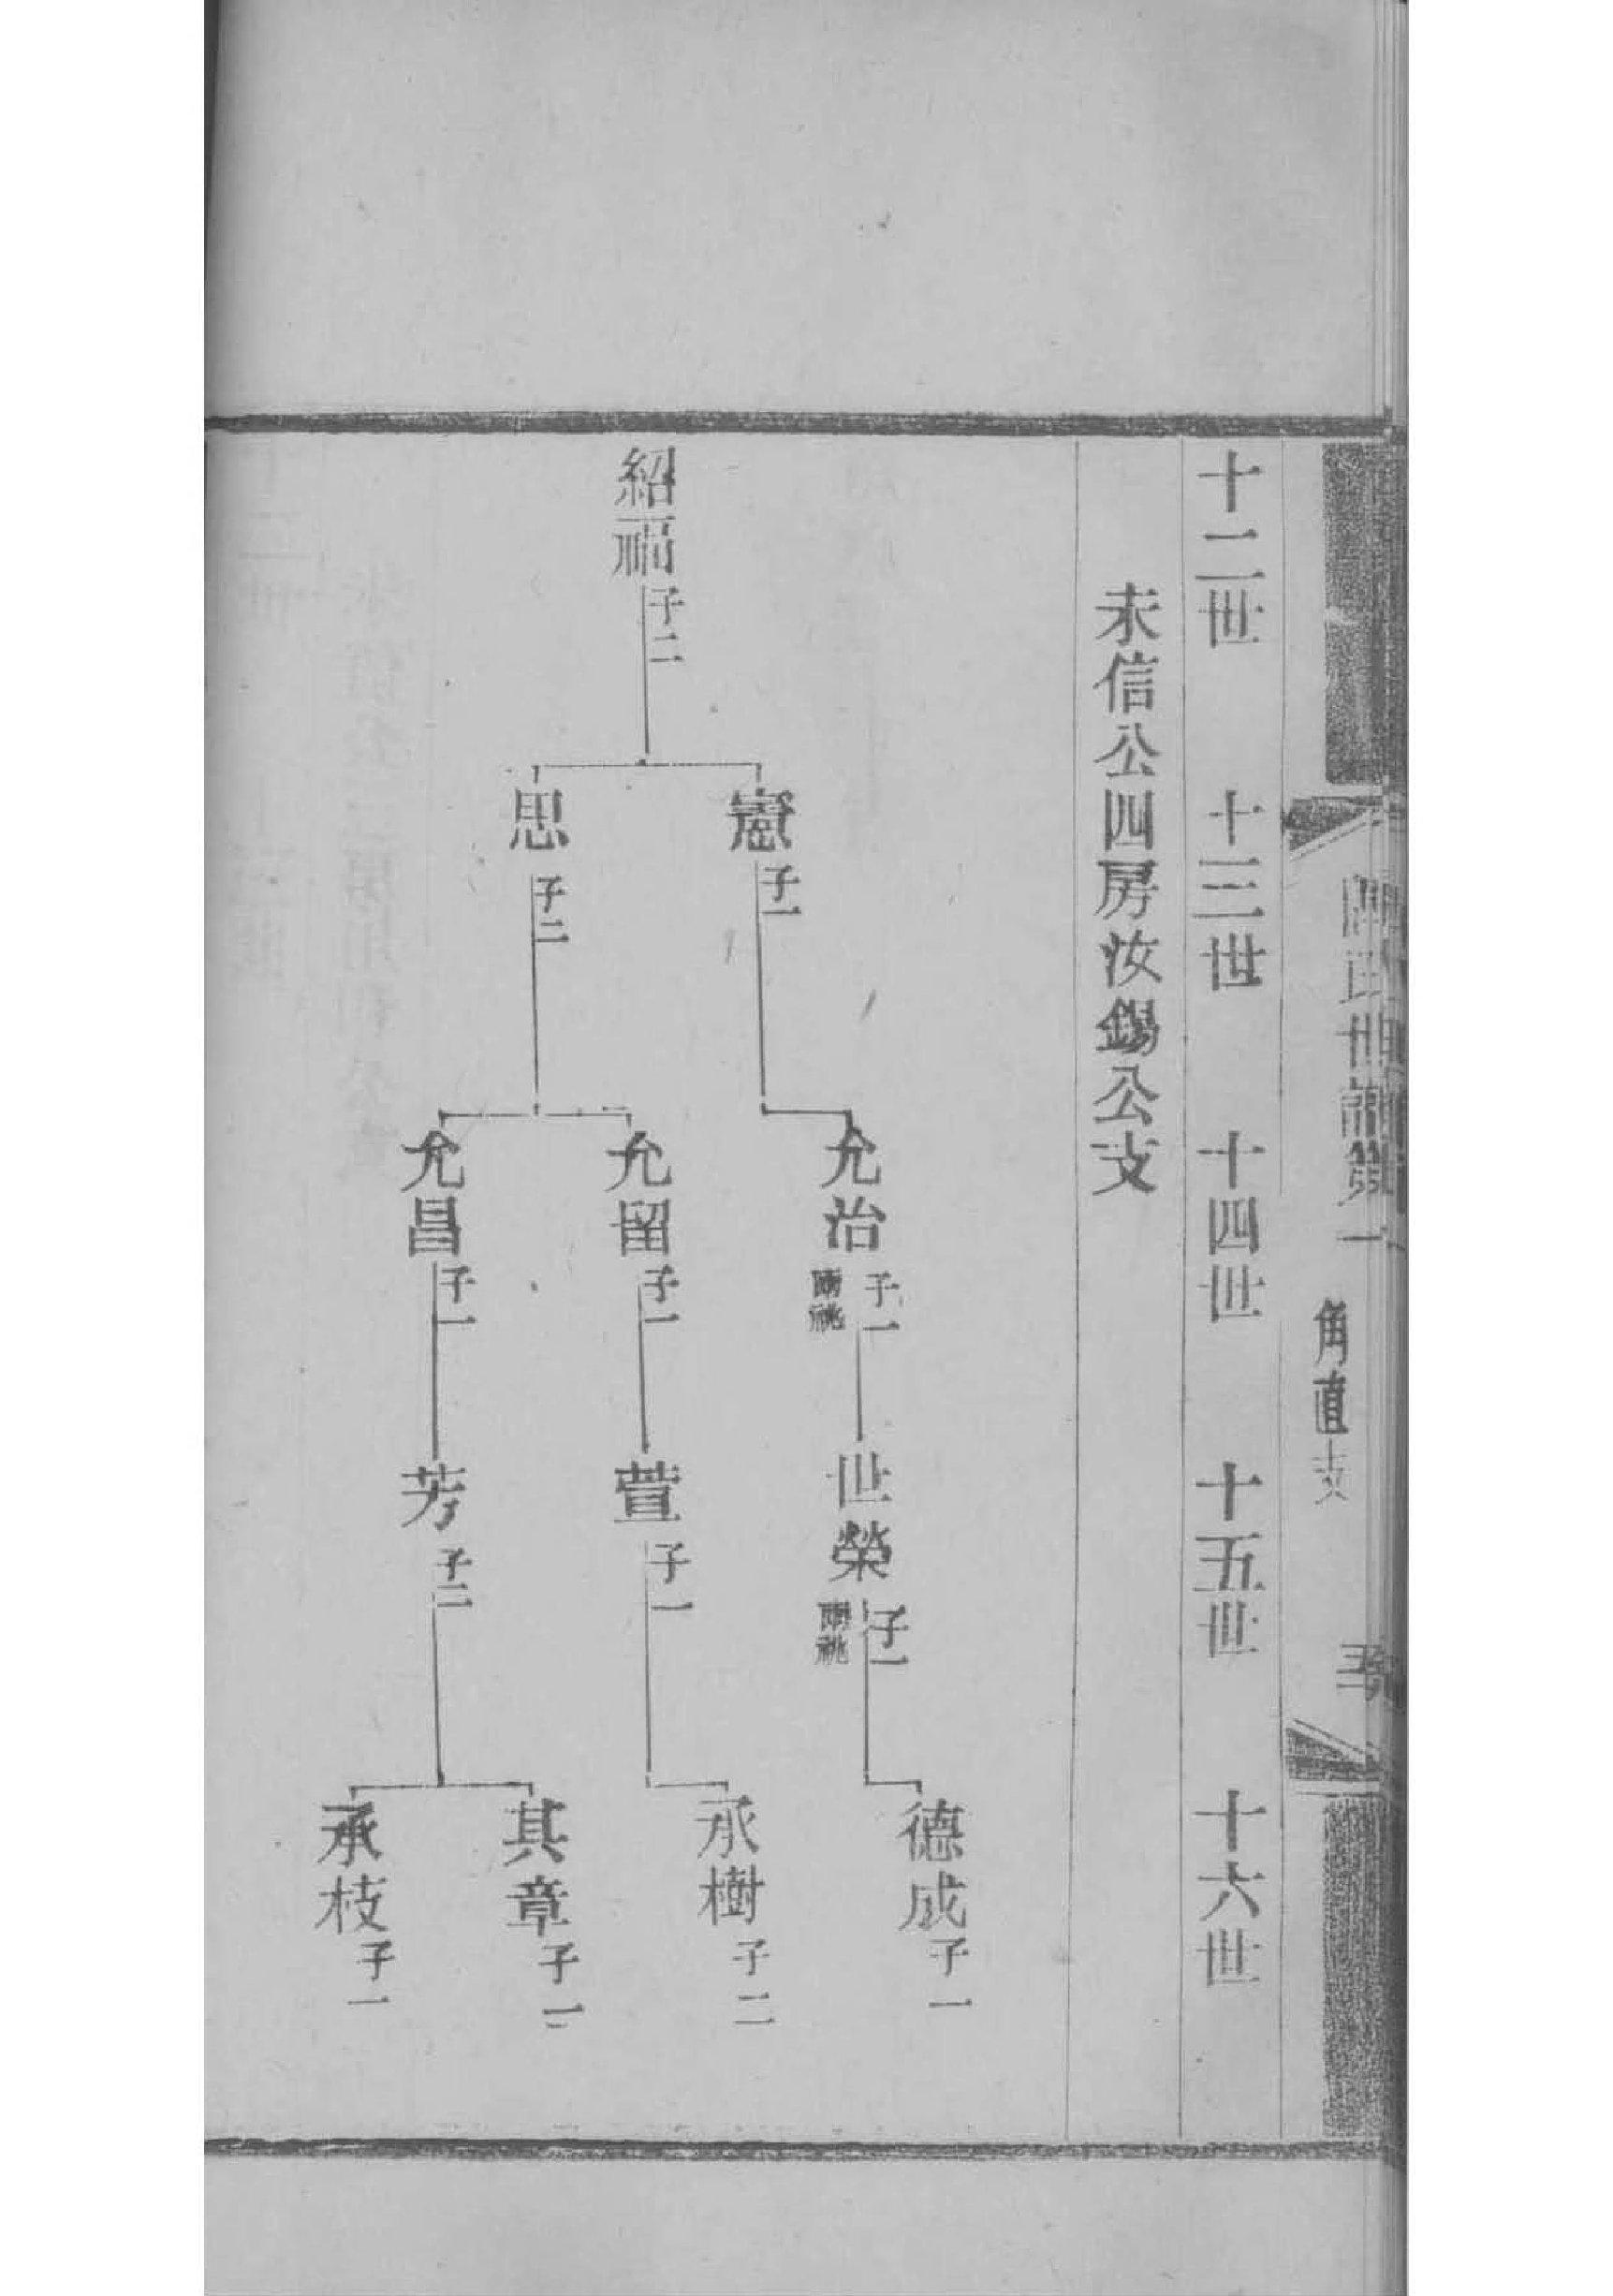 世譜卷一
甪直支
十二世 十三世 十四世 十五世 十六世
未信公四房汝錫公支
紹福 子二
憲 子一
思 子二
允治 子一 兼祧
允留 子一
允昌 子一
世榮 子一 兼祧
萱 子一
芳 子二
德成 子一
承樹 子二
其章 子一
承枝 子一